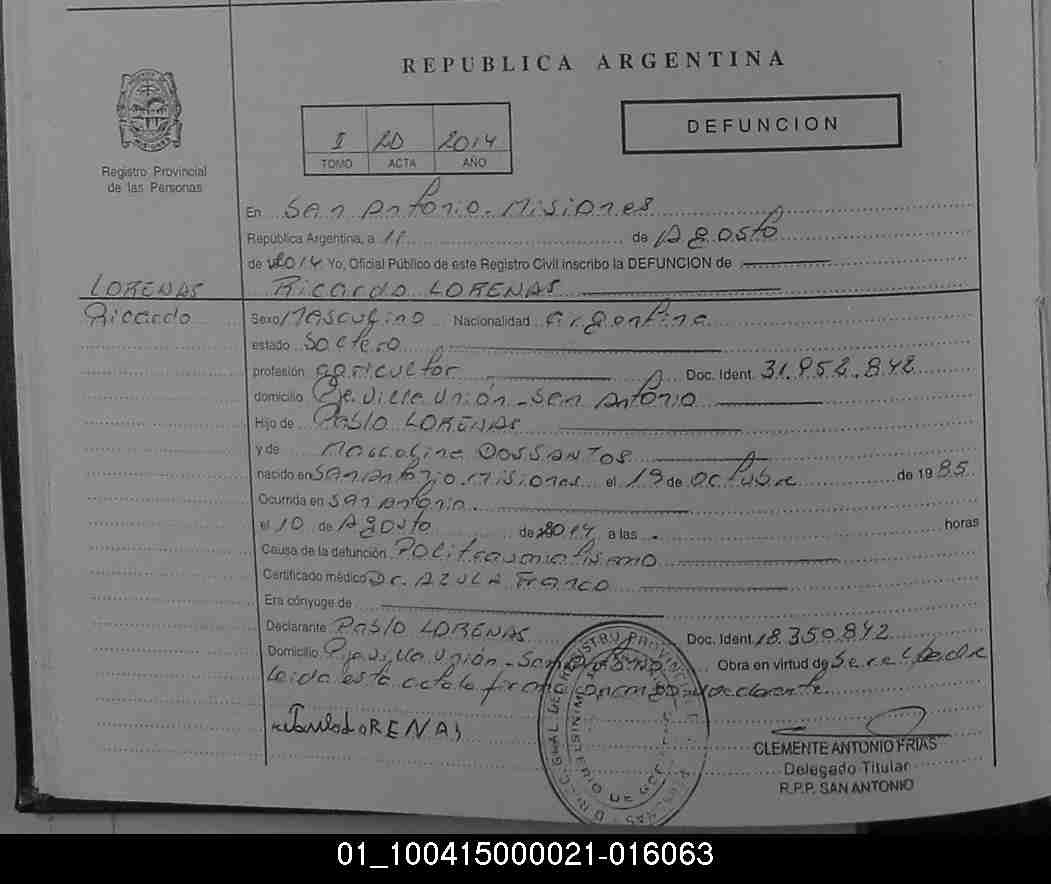 REPUBLICA ARGENTINA
Registro Provincial
de las Personas
I 20 2014
TOMO ACTA AÑO
DEFUNCION
En San Antonio. Misiones
República Argentina, a 11 de Agosto
de 2014 Yo, Oficial Público de este Registro Civil inscribo la DEFUNCION de
LORENAS
Ricardo
Ricardo LORENAS
Sexo Masculino Nacionalidad argentina
estado Soltero
profesión agricultor Doc. Ident. 31.952.842
domicilio Pje. Villa Unión - San Antonio
Hijo de Pablo LORENAS
y de DOSSANTOS
nacido en San Antonio. Misiones el 19 de Octubre de 1985
Ocurrida en San Antonio
el 10 de Agosto de 2014 a las horas
Causa de la defunción Politraumatismo
Certificado médico Dr. AZULA Franco
Era cónyuge de
Declarante Pablo LORENAS Doc. Ident. 18.350.842
Domicilio Pje Villa Unión - San Antonio Obra en virtud de Ser el padre
Leida esta acta la firma declarante
LORENAS
CLEMENTE ANTONIO FRIAS
Delegado Titular
R.P.P. SAN ANTONIO
01_100415000021-016063